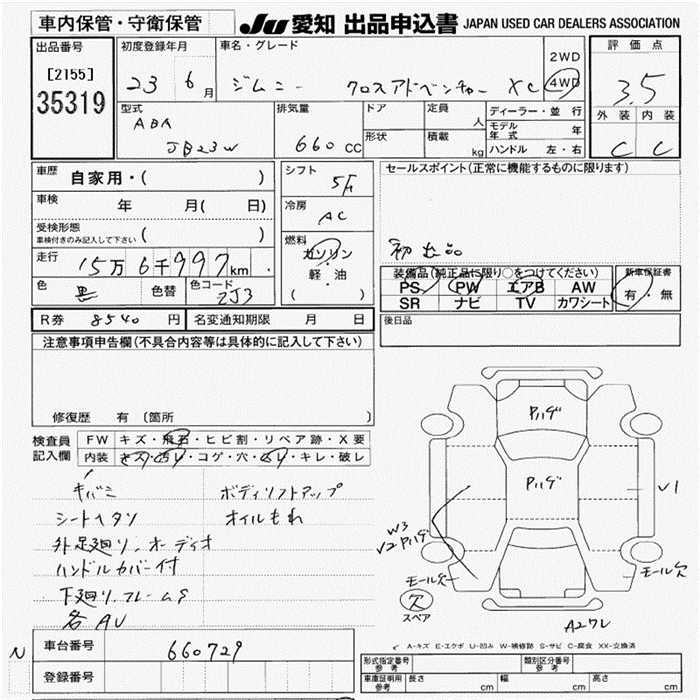 車内保管・守衛保管 JU 愛知 出品申込書 JAPAN USED CAR DEALERS ASSOCIATION
出品番号 初度登録年月 車名・グレード 2WD 評価点
[2155] 23 6月 ジムニー クロスアドベンチャー XC 4WD 3.5
35319 型式 排気量 ドア 定員 人 ディーラー・並行 外装 内装
ABA モデル年式 年
JB23W 660 CC 形状 積載 kg ハンドル 左・右 C C
車歴 自家用・( ) シフト 5F セールスポイント(正常に機能するものに限ります)
車検 年 月( 日) 冷房 AC
受検形態 ( )
車検付きのみ記入して下さい
燃料 ガソリン 初出品
走行 15万6千997km 軽・油 装備品(純正品に限り○をつけてください) 新車保証書
色 黒 色替 色コード ZJ3 ( ) PS PW エアB AW 有・無
SR ナビ TV カワシート
R券 8540円 名変通知期限 月 日 後日品
注意事項申告欄(不具合内容等は具体的に記入して下さい)
修復歴 有 〔箇所
検査員 FW キズ・飛石・ヒビ割・リペア跡・X要
記入欄 内装 キズ・汚れ・コゲ・穴・スレ・キレ・破レ
キバミ ボディリフトアップ
シートヘタリ オイルもれ
外足廻り、オーディオ
ハンドルカバー付
下廻り、フレームS
各AU
Pハゲ
Pハゲ
V1
W3
V2Pハゲ
モール欠 モール欠
欠
スペア
A27レ
A-キズ E-エクボ U-凹み W-補修跡 S-サビ C-腐食 XX-交換済
N 車台番号 660729
登録番号
形式指定番号 参考 類別区分番号 参考
車庫証明用 参考 長さ cm 幅 cm 高さ cm